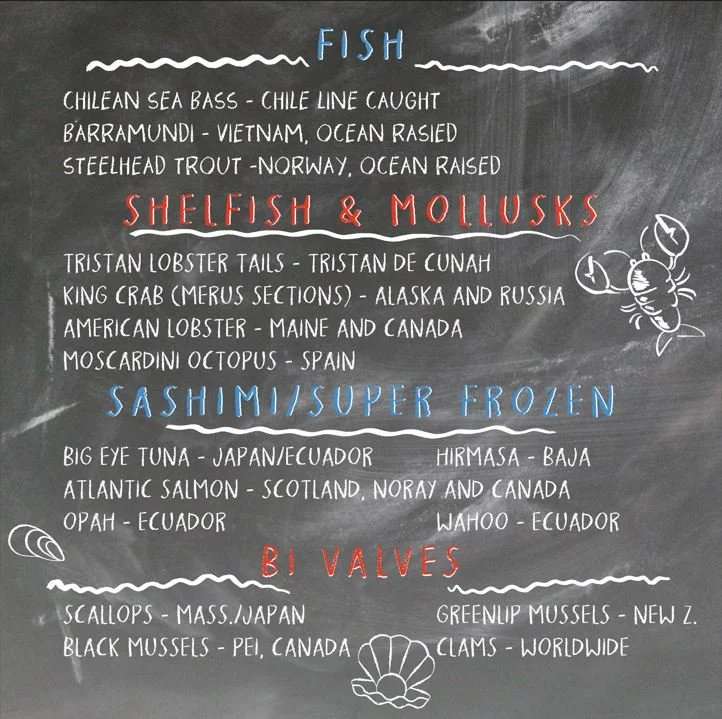 FISH
CHILEAN SEA BASS - CHILE LINE CAUGHT
BARRAMUNDI - VIETNAM, OCEAN RASIED
STEELHEAD TROUT -NORWAY, OCEAN RAISED
SHELFISH & MOLLUSKS
TRISTAN LOBSTER TAILS - TRISTAN DE CUNAH
KING CRAB (MERUS SECTIONS) - ALASKA AND RUSSIA
AMERICAN LOBSTER - MAINE AND CANADA
MOSCARDINI OCTOPUS - SPAIN
SASHIMI/SUPER FROZEN
BIG EYE TUNA - JAPAN/ECUADOR HIRMASA - BAJA
ATLANTIC SALMON - SCOTLAND, NORAY AND CANADA
OPAH - ECUADOR WAHOO - ECUADOR
BI VALVES
SCALLOPS - MASS./JAPAN GREENLIP MUSSELS - NEW Z.
BLACK MUSSELS - PEI, CANADA CLAMS - WORLDWIDE